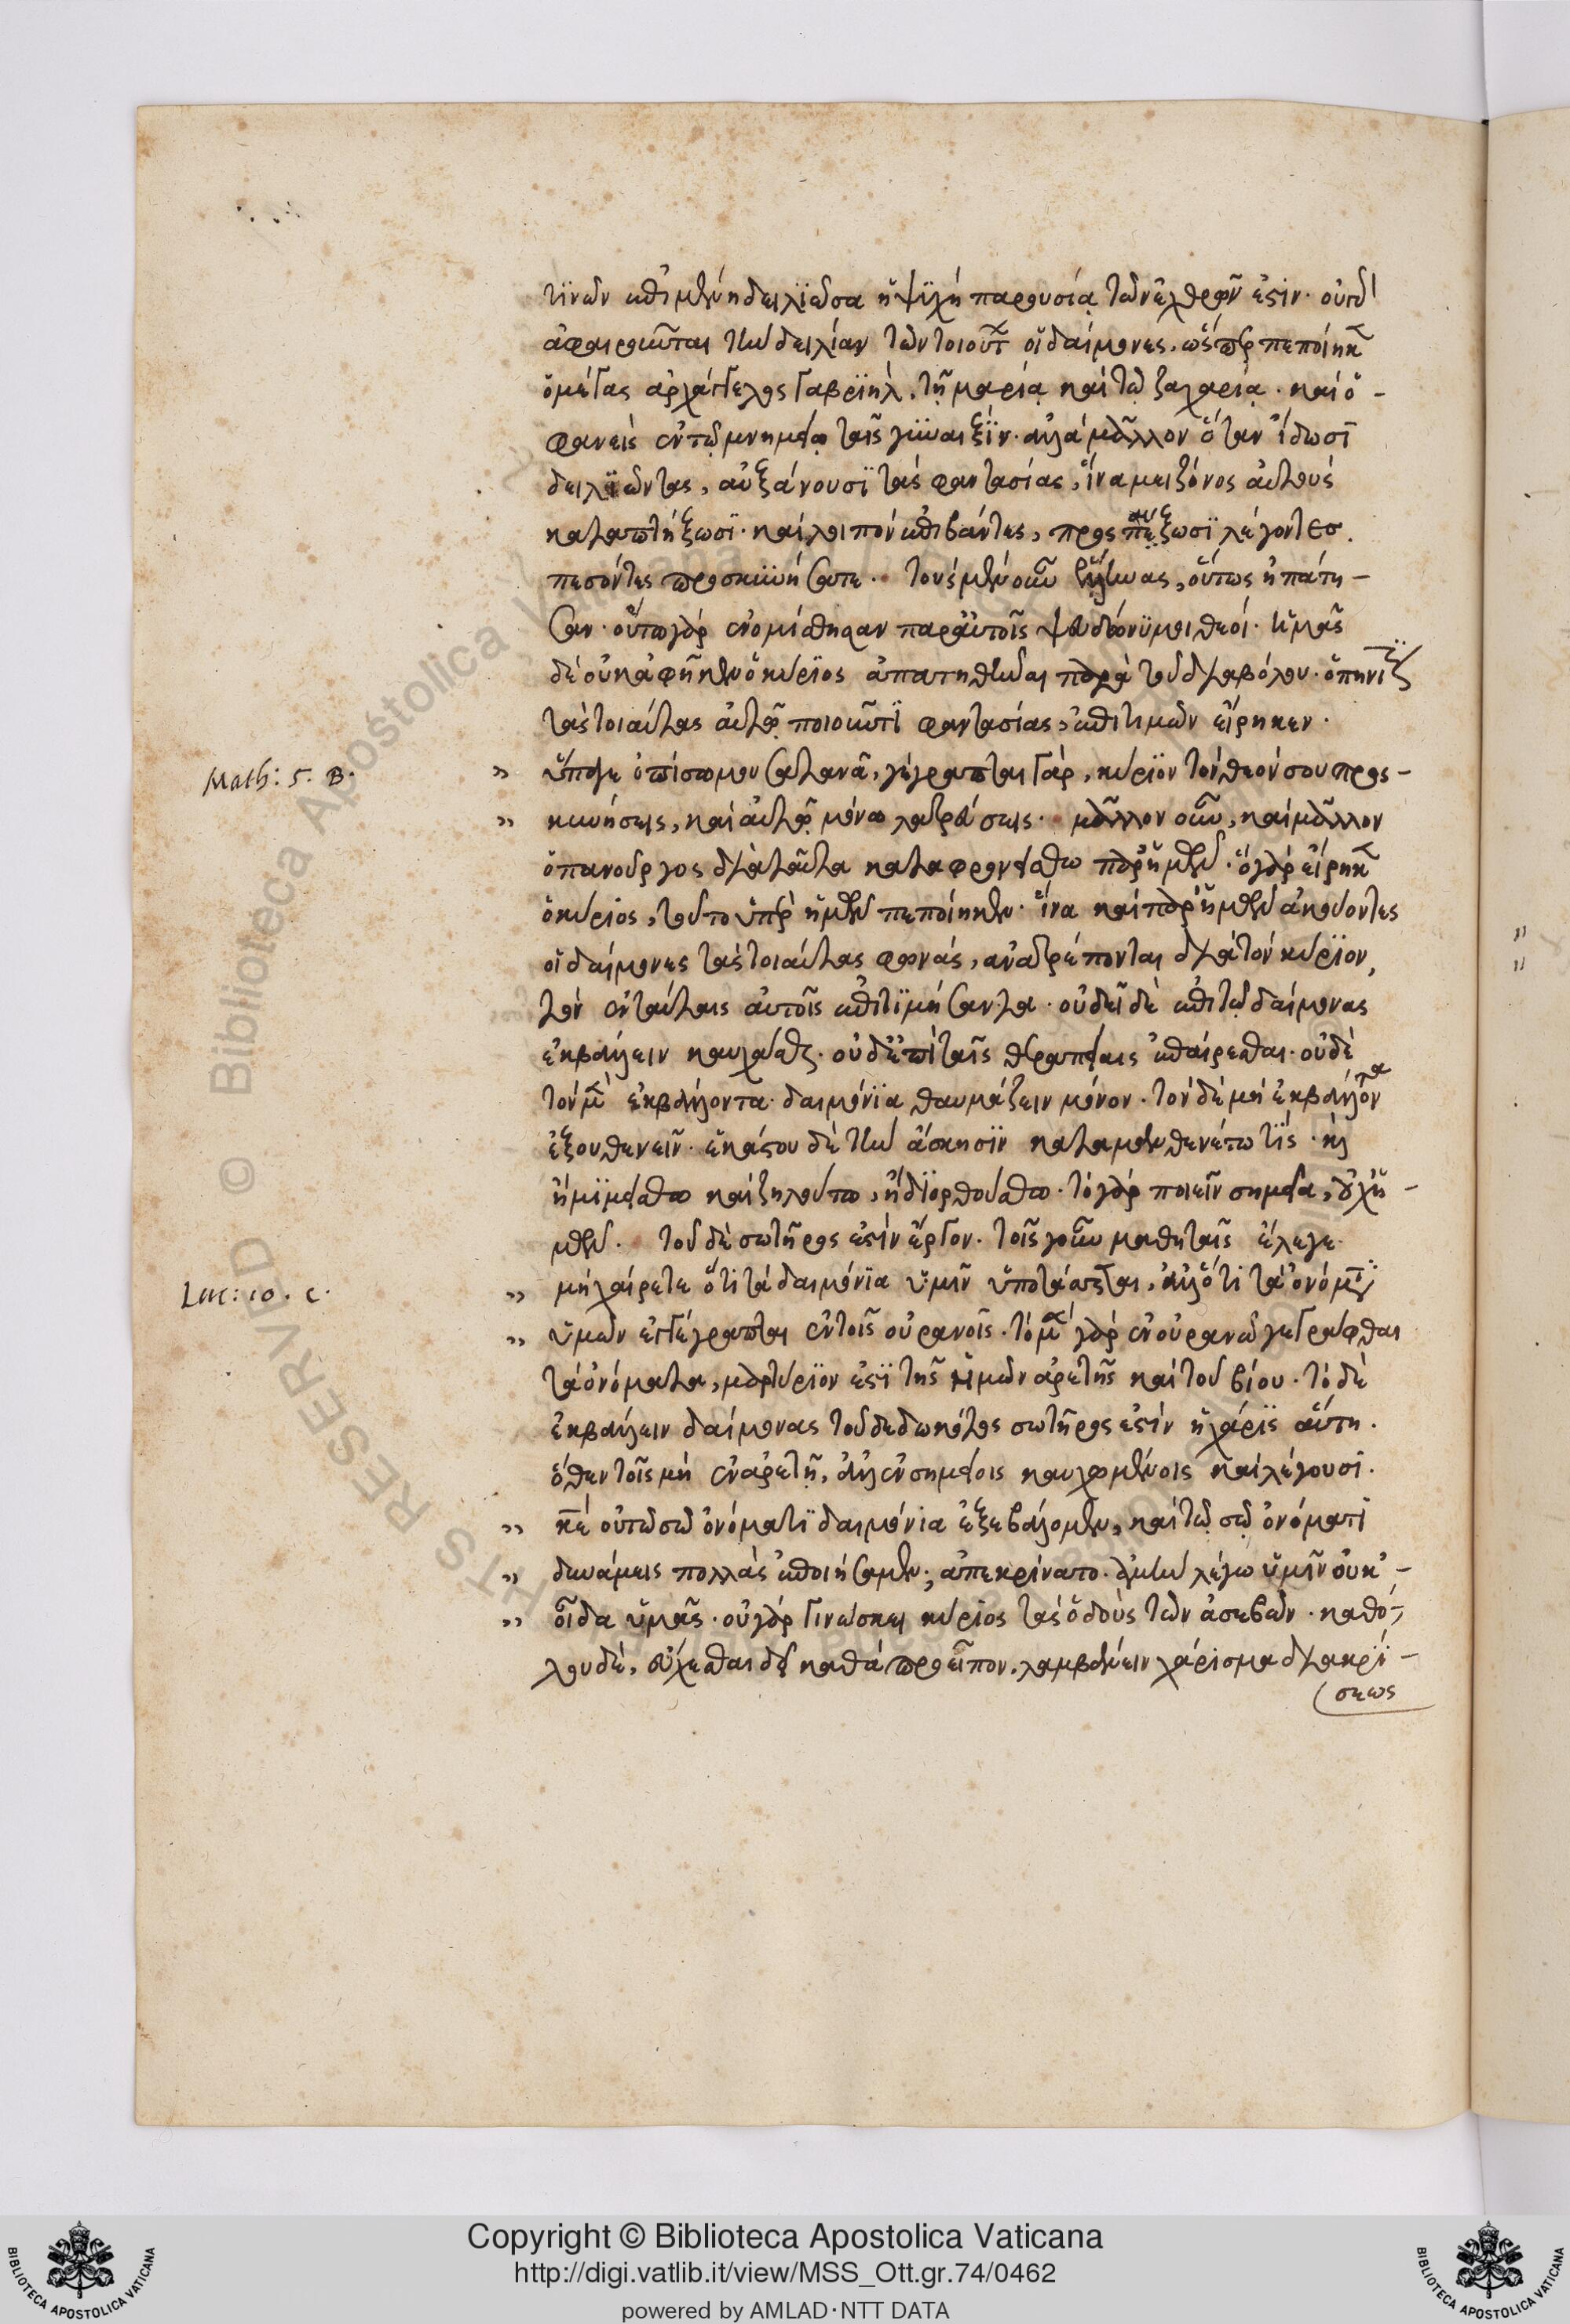 τινῶν ἐπιμένη δειλιῶσα ἡ ψυχὴ παρουσίᾳ τῶν ἐχθρῶν ἐστιν. οὐ γὰρ
ἀφαιροῦνται τὴν δειλίαν τῶν τοιούτων οἱ δαίμονες, ὥσπερ πεποίηκεν
ὁ μέγας ἀρχάγγελος Γαβριὴλ, τῇ μαρίᾳ καὶ τῷ ζαχαρίᾳ. καὶ ὁ -
φανεὶς ἐν τῷ μνημείῳ ταῖς γυναιξίν. ἀλλὰ μᾶλλον ὅταν ἴδωσι
δειλιῶντας, αὐξάνουσι τὰς φαντασίας, ἵνα μειζόνως αὐτοὺς
καταπτήξωσι. καὶ λοιπὸν ἐπιβάντες, προσπαίξωσι λέγοντες.
πεσόντες προσκυνήσατε. τοὺς μὲν οὖν ἕλληνας, οὕτως ἠπάτη-
σαν. οὕτω γὰρ ἐνομίσθησαν παρ' αὐτοῖς ψευδώνυμοι θεοί. ἡμᾶς
δὲ οὐκ ἀφῆκεν ὁ κύριος ἀπατηθῆναι παρὰ τοῦ διαβόλου. ὁπηνίκα
τὰς τοιαύτας αὐτῷ ποιοῦντι φαντασίας, ἐπιτιμῶν εἴρηκεν.
Math: 5. B.
" ὕπαγε ὀπίσω μου σατανᾶ, γέγραπται γάρ, κύριον τὸν θεόν σου προσ-
" κυνήσεις, καὶ αὐτῷ μόνῳ λατρεύσεις. μᾶλλον οὖν, καὶ μᾶλλον
ὁ πανοῦργος διὰ ταῦτα καταφρονείσθω παρ' ἡμῶν. ὃ γὰρ εἴρηκεν
ὁ κύριος, τοῦτο ὑπὲρ ἡμῶν πεποίηκεν. ἵνα καὶ παρ' ἡμῶν ἀκούοντες
οἱ δαίμονες τὰς τοιαύτας φωνάς, ἀνατρέπονται διὰ τὸν κύριον,
τὸν ἐν ταύταις αὐτοῖς ἐπιτιμήσαντα. οὐ δεῖ δὲ ἐπὶ τῷ δαίμονας
ἐκβάλλειν καυχᾶσθαι. οὐδ' ἐπὶ ταῖς θεραπείαις ἐπαίρεσθαι. οὐδὲ
τὸν μὲν ἐκβάλλοντα δαιμόνια θαυμάζειν μόνον. τὸν δὲ μὴ ἐκβάλλοντα
ἐξουθενεῖν. ἑκάστου δὲ τὴν ἄσκησιν καταμανθανέτω τίς. καὶ
ἢ μιμείσθω καὶ ζηλούτω, ἢ διορθούσθω. τὸ γὰρ ποιεῖν σημεῖα, οὐχ ἡ-
μῶν. τοῦ δὲ σωτῆρος ἐστὶν ἔργον. τοῖς γοῦν μαθηταῖς ἔλεγε.
Luc: 10. c.
" μὴ χαίρετε ὅτι τὰ δαιμόνια ὑμῖν ὑποτάσσεται, ἀλλ' ὅτι τὰ ὀνόματα
" ὑμῶν ἐγγέγραπται ἐν τοῖς οὐρανοῖς. τὸ μὲν γὰρ ἐν οὐρανῷ γεγράφθαι
τὰ ὀνόματα, μαρτύριόν ἐστι τῆς ἡμῶν ἀρετῆς καὶ τοῦ βίου. τὸ δὲ
ἐκβάλλειν δαίμονας τοῦ δεδωκότος σωτῆρος ἐστὶν ἡ χάρις αὕτη.
ὅθεν τοῖς μὴ ἐν ἀρετῇ, ἀλλ' ἐν σημείοις καυχωμένοις καὶ λέγουσι.
" κε οὐ τῷ σῷ ὀνόματι δαιμόνια ἐξεβάλομεν, καὶ τῷ σῷ ὀνόματι
" δυνάμεις πολλὰς ἐποιήσαμεν; ἀπεκρίνατο. ἀμὴν λέγω ὑμῖν οὐκ -
" οἶδα ὑμᾶς. οὐ γὰρ γινώσκει κύριος τὰς ὁδοὺς τῶν ἀσεβῶν. καθό-
λου δέ, εὔχεσθαι δεῖ καθὰ προεῖπον, λαμβάνειν χάρισμα διακρί-
σεως
Copyright © Biblioteca Apostolica Vaticana
http://digi.vatlib.it/view/MSS_Ott.gr.74/0462
powered by AMLAD·NTT DATA